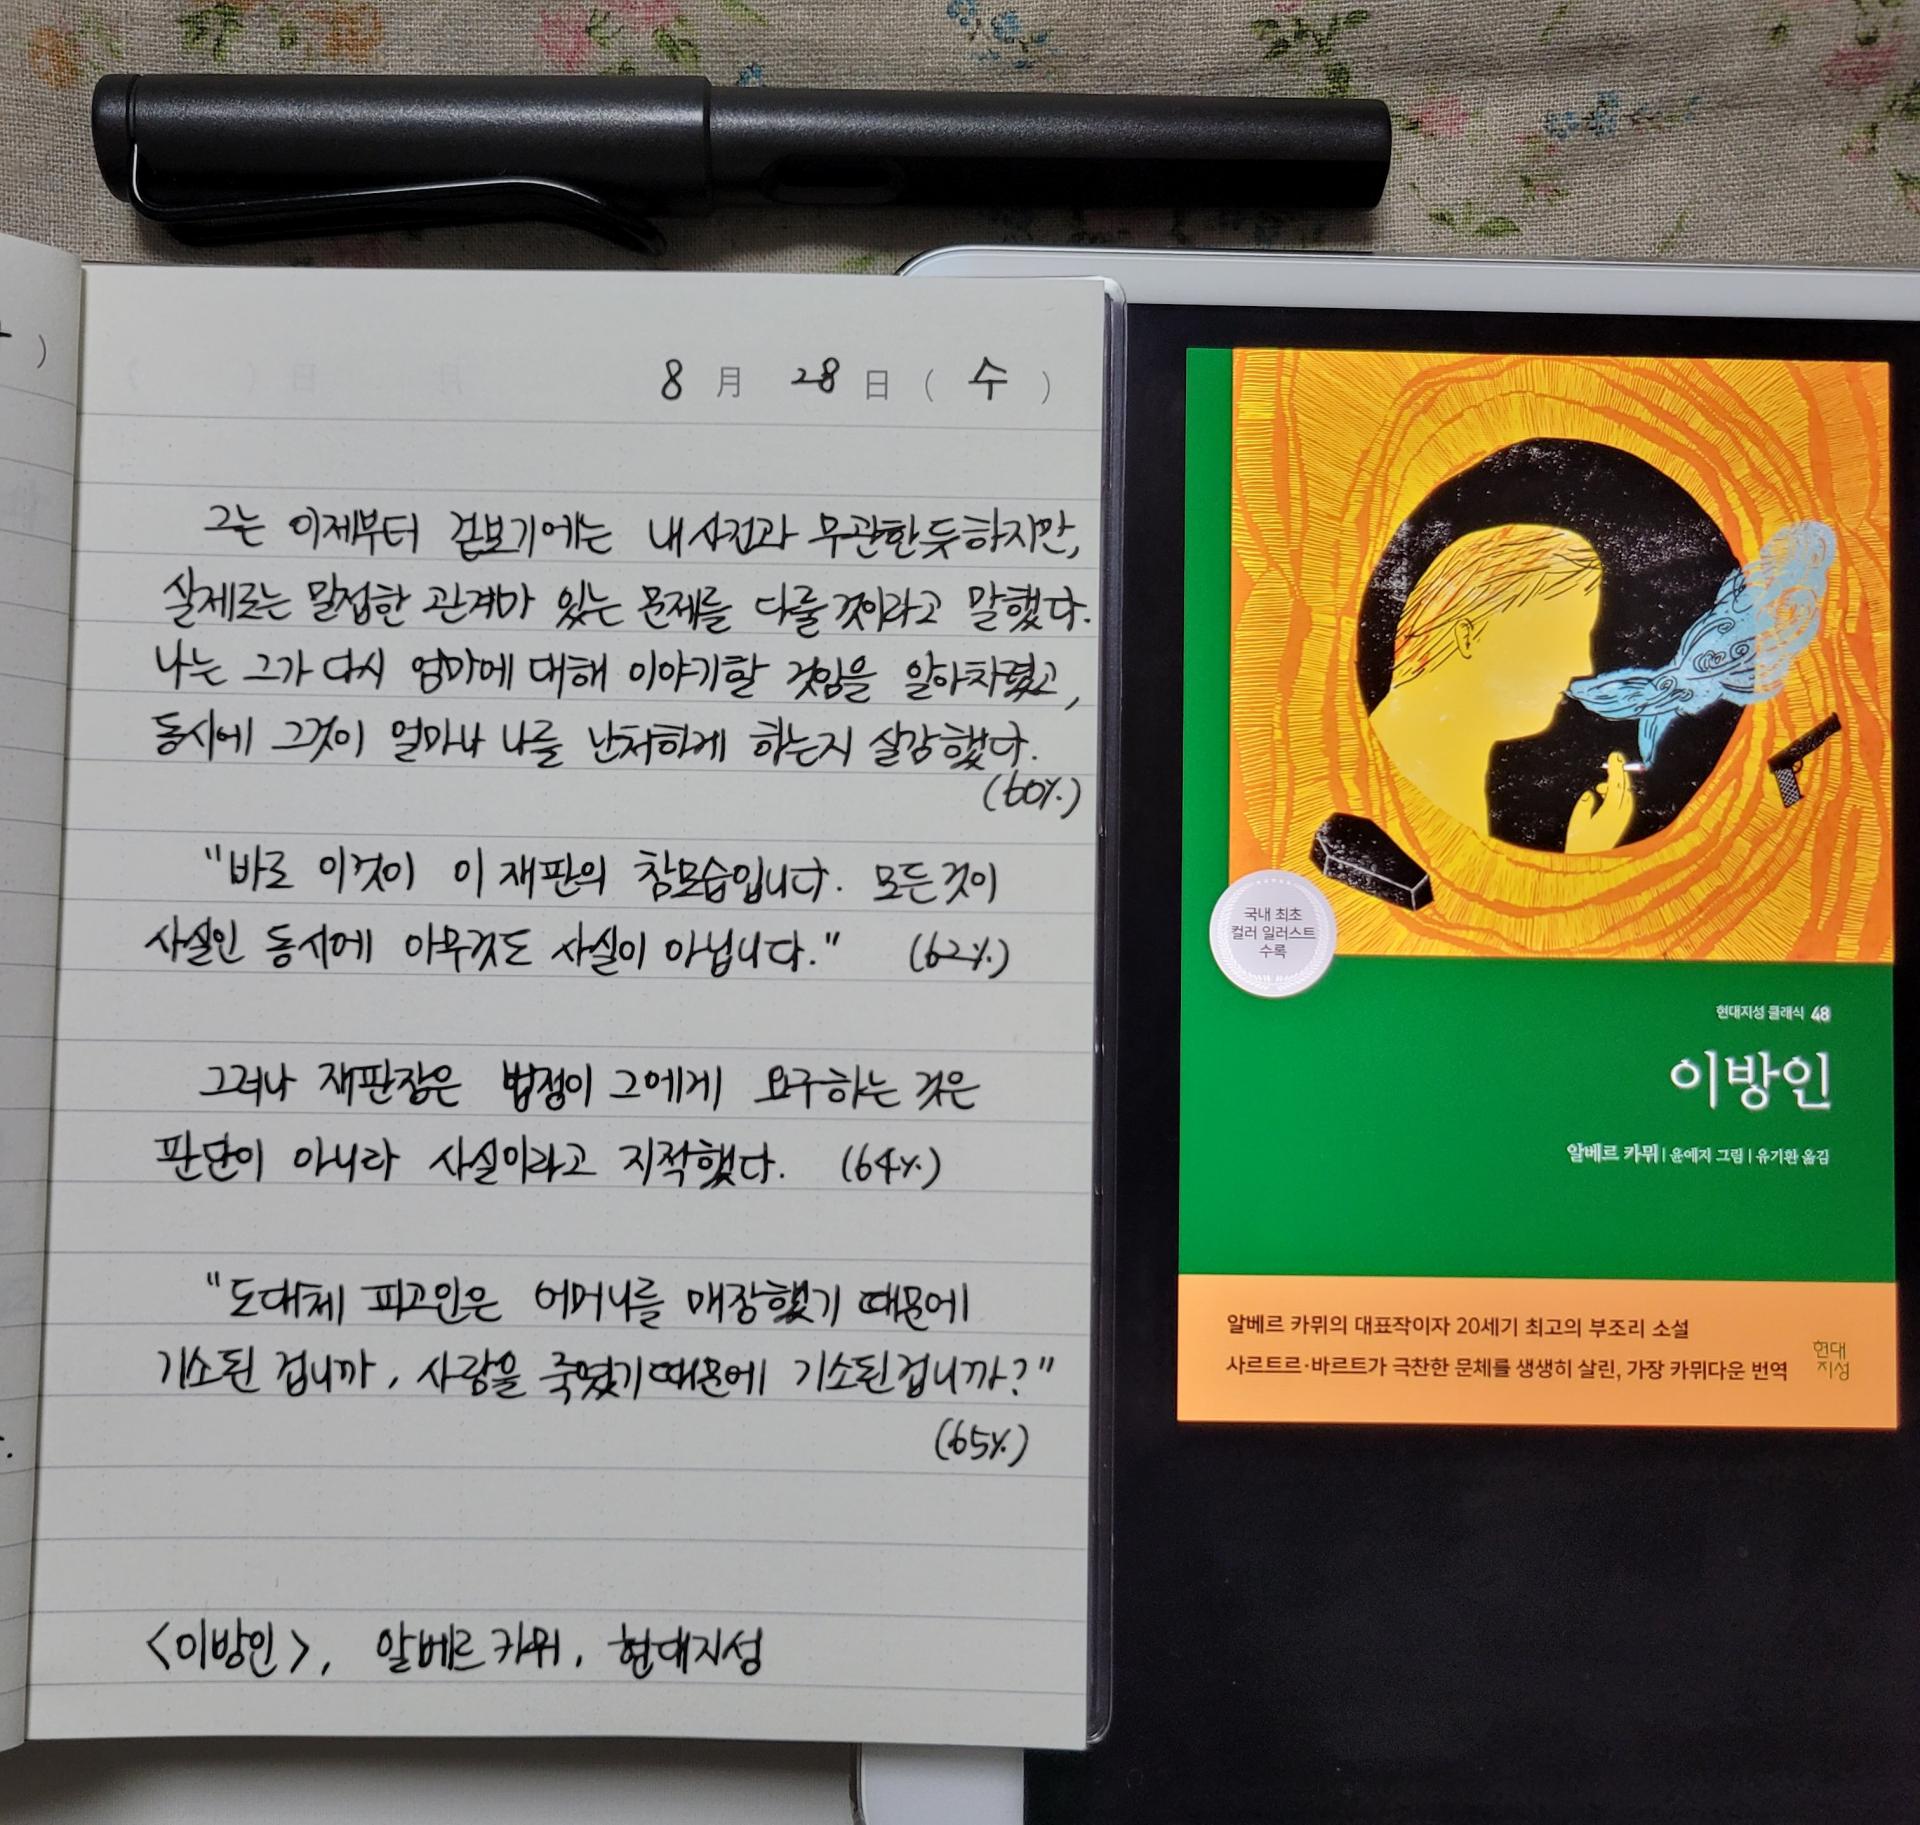 8 月 28 日 ( 수 )
그는 이제부터 겉보기에는 내 사건과 무관한 듯하지만,
실제로는 밀접한 관계가 있는 문제를 다룰 것이라고 말했다.
나는 그가 다시 엄마에 대해 이야기할 것임을 알아차렸고,
동시에 그것이 얼마나 나를 난처하게 하는지 실감했다.
(60%)
"바로 이것이 이 재판의 참모습입니다. 모든 것이
사실인 동시에 아무것도 사실이 아닙니다." (62%)
그러나 재판장은 법정이 그에게 요구하는 것은
판단이 아니라 사실이라고 지적했다. (64%)
"도대체 피고인은 어머니를 매장했기 때문에
기소된 겁니까, 사람을 죽였기 때문에 기소된 겁니까?"
(65%)
<이방인>, 알베르 카뮈, 현대지성
국내 최초
컬러 일러스트
수록
현대지성 클래식 48
이방인
알베르 카뮈 | 윤예지 그림 | 유기환 옮김
알베르 카뮈의 대표작이자 20세기 최고의 부조리 소설
사르트르·바르트가 극찬한 문체를 생생히 살린, 가장 카뮈다운 번역
현대
지성